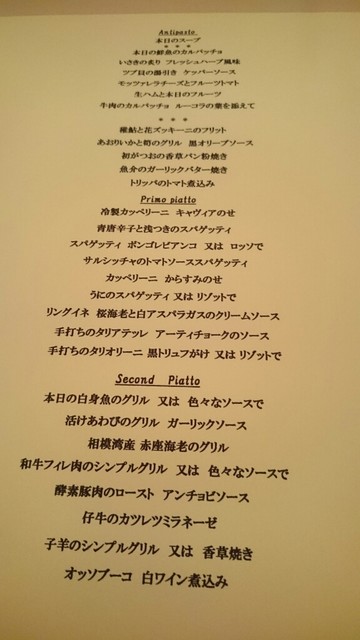 Antipasto
本日のスープ
＊＊＊
本日の鮮魚のカルパッチョ
いさきの炙り フレッシュハーブ風味
ツブ貝の湯引き ケッパーソース
モッツァレラチーズとフルーツトマト
生ハムと本日のフルーツ
牛肉のカルパッチョ ルーコラの葉を添えて
＊＊＊
稚鮎と花ズッキーニのフリット
あおりいかと筍のグリル 黒オリーブソース
初がつおの香草パン粉焼き
魚介のガーリックバター焼き
トリッパのトマト煮込み
Primo piatto
冷製カッペリーニ キャヴィアのせ
青唐辛子と浅つきのスパゲティ
スパゲティ ボンゴレビアンコ 又は ロッソで
サルシッチャのトマトソーススパゲッティ
カッペリーニ からすみのせ
うにのスパゲティ 又は リゾットで
リングイネ 桜海老と白アスパラガスのクリームソース
手打ちのタリアテッレ アーティチョークのソース
手打ちのタリオリーニ 黒トリュフがけ 又は リゾットで
Second Piatto
本日の白身魚のグリル 又は 色々なソースで
活けあわびのグリル ガーリックソース
相模湾産 赤座海老のグリル
和牛フィレ肉のシンプルグリル 又は 色々なソースで
酵素豚肉のロースト アンチョビソース
仔牛のカツレツミラネーゼ
子羊のシンプルグリル 又は 香草焼き
オッソブーコ 白ワイン煮込み